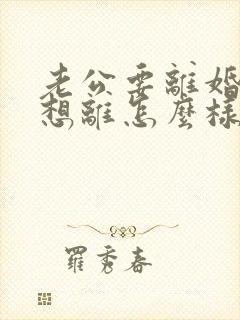 老公要離婚
想離怎麼樣
羅秀春